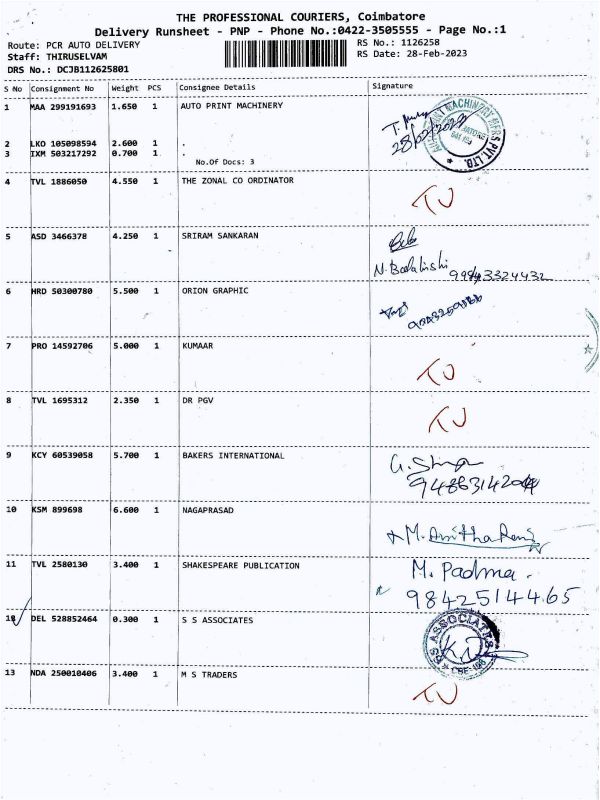 THE PROFESSIONAL COURIERS, Coimbatore
Delivery Runsheet - PNP - Phone No.:0422-3505555 - Page No.:1
Route: PCR AUTO DELIVERY RS No.: 1126258
Staff: THIRUSELVAM RS Date: 28-Feb-2023
DRS No.: DCJB112625801
S No Consignment No Weight PCS Consignee Details Signature
1 MAA 299191693 1.650 1 AUTO PRINT MACHINERY
28/02/2023
2 LKO 105098594 2.600 1 .
3 IXM 503217292 0.700 1 .
No.Of Docs: 3
4 TVL 1886050 4.550 1 THE ZONAL CO ORDINATOR TU
5 ASD 3466378 4.250 1 SRIRAM SANKARAN
99943324432
6 HRD 50300780 5.500 1 ORION GRAPHIC
7 PRO 14592706 5.000 1 KUMAAR TU
8 TVL 1695312 2.350 1 DR PGV TU
9 KCY 60539058 5.700 1 BAKERS INTERNATIONAL
10 KSM 899698 6.600 1 NAGAPRASAD
11 TVL 2580130 3.400 1 SHAKESPEARE PUBLICATION M. Padma.
9842514465
12 DEL 528852464 0.300 1 S S ASSOCIATES SS ASSOCIATES
13 NDA 250010406 3.400 1 M S TRADERS TU